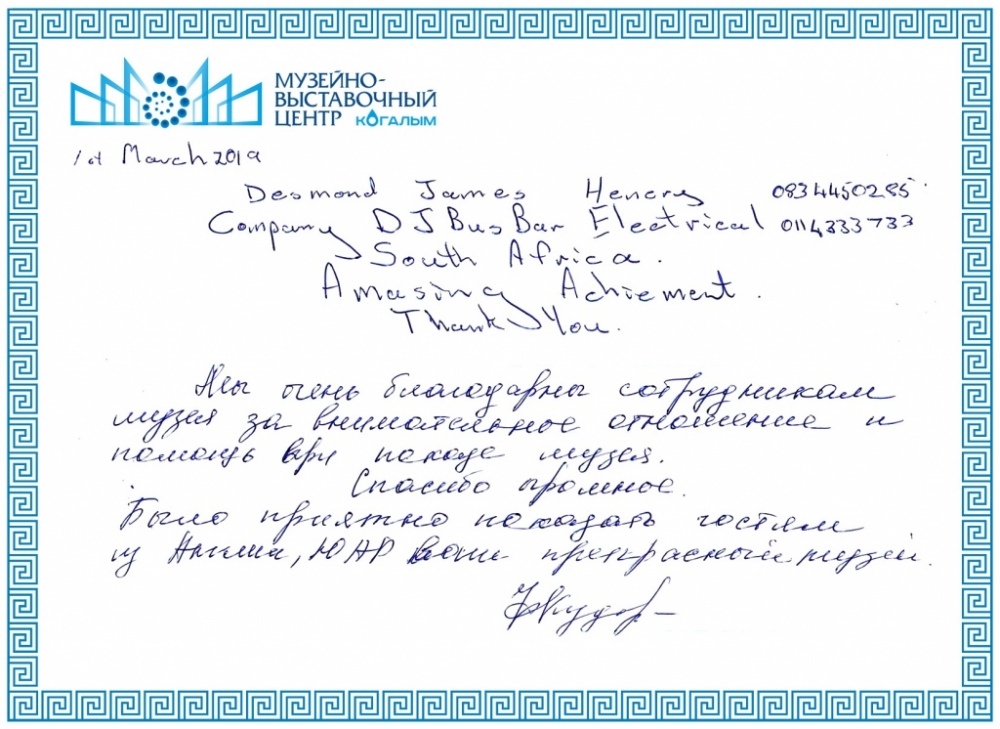 МУЗЕЙНО-
ВЫСТАВОЧНЫЙ
ЦЕНТР КОГАЛЫМ
1st March 2019
Desmond James Henery 0834450285
Company DJ BusBar Electrical 0114333733
South Africa.
Amasing Achiement.
Thank You.
Мы очень благодарны сотрудникам
музея за внимательное отношение и
помощь при показе музея.
Спасибо огромное.
Было приятно показать гостям
из Англии, ЮАР ваш прекрасный музей.